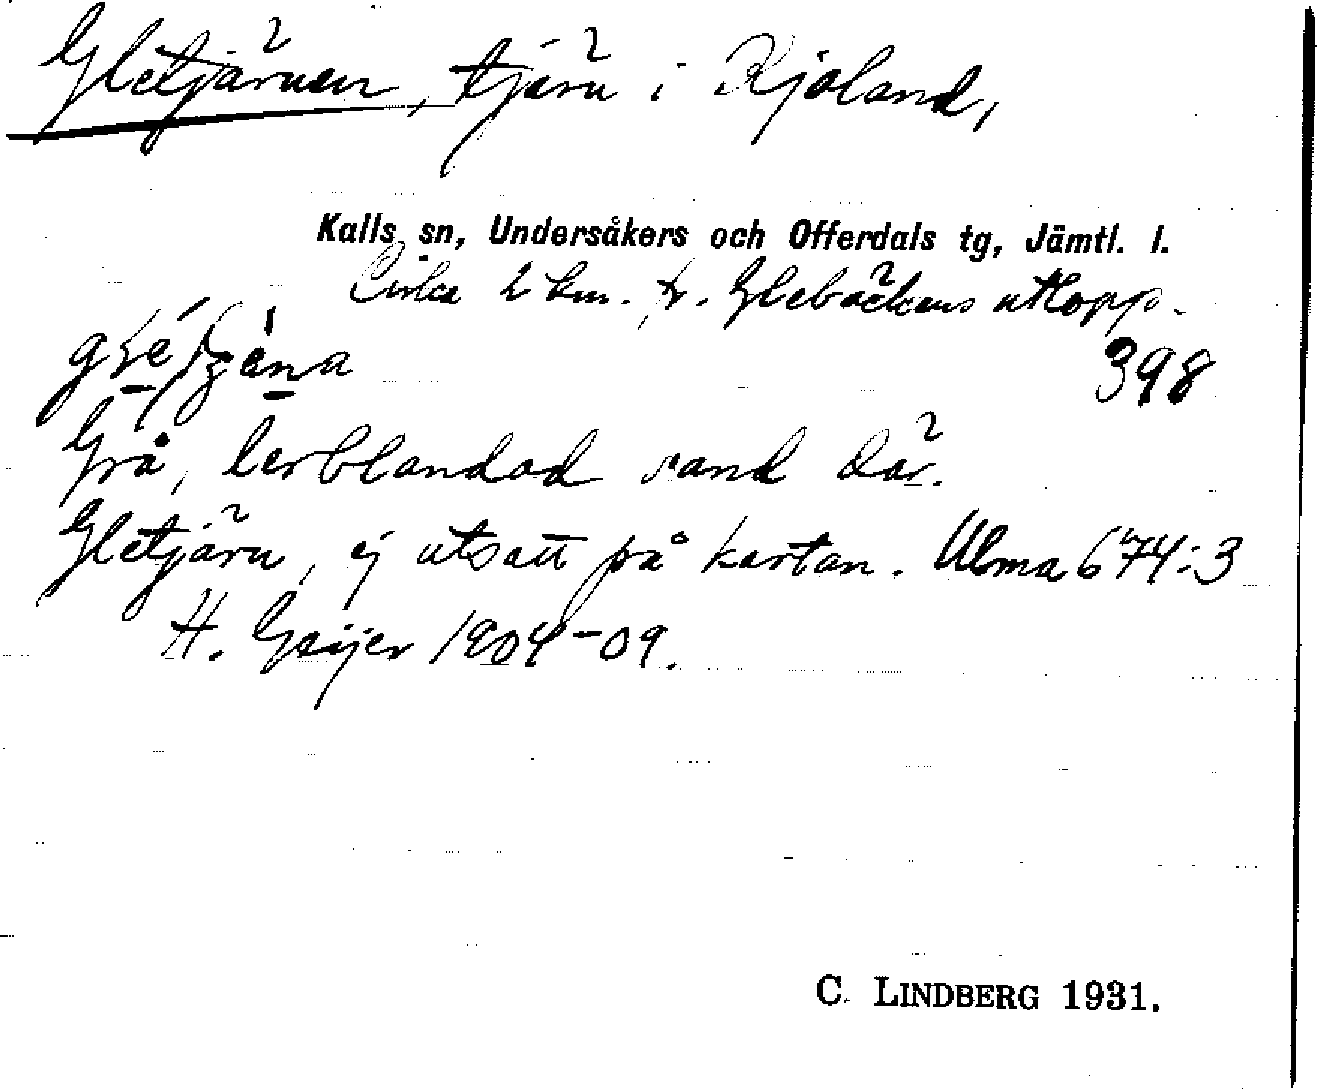 Gletjärnen, tjärn i Kjoland,
Kalls sn, Undersåkers och Offerdals tg, Jämtl. l.
Cirka 2 km. fr. Glebäckens utlopp.
398
Grå, lerblandad sand där.
Gletjärn, ej utsatt på kartan. Ulma 674:3
H. Geijer 1904-09.
C. LINDBERG 1931.